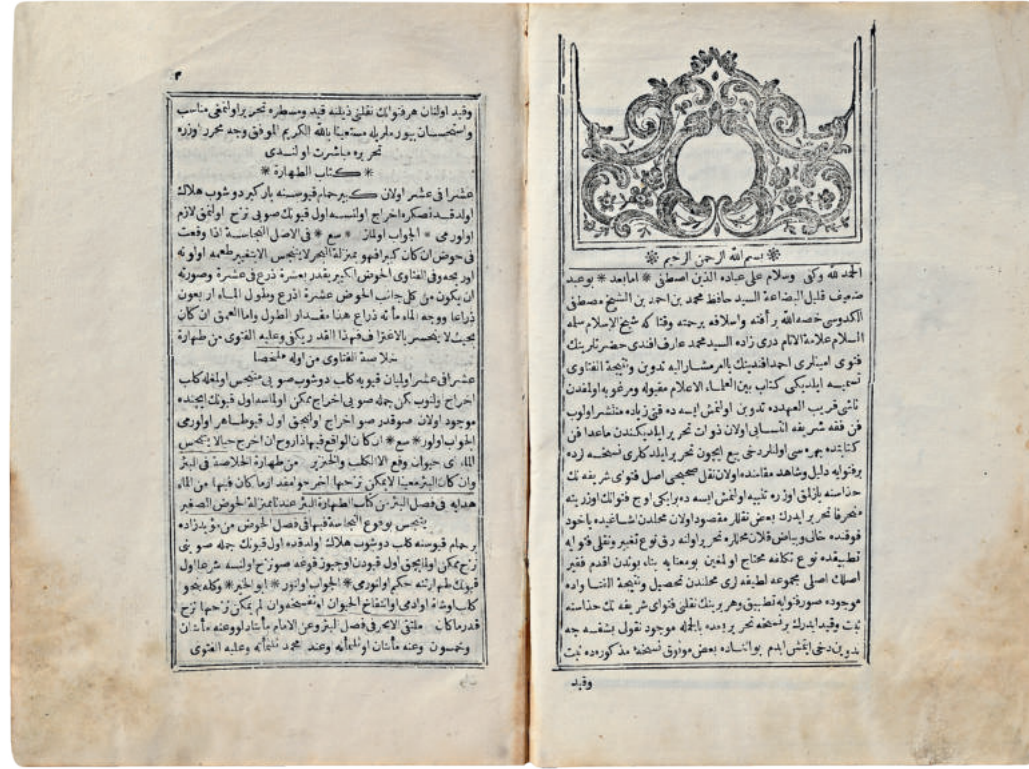 ❊ بسم الله الرحمن الرحيم ❊
الحمد لله وكفى وسلام على عباده الذين اصطفى ❊ اما بعد ❊ بو عبد
ضعيف قليل البضاعة السيد حافظ محمد بن احمد بن الشيخ مصطفى
الكدوسى خصه الله برأفته واسلافه برحمته وقتا كه شيخ الاسلام سلمه
السلام علامة الانام درى زاده السيد محمد عارف افندى حضرتلرينك
فتوى امينلرى احمد افندينك با امر مشار اليه تدوين ونتيجة الفتاوى
تسميه ايلديكى كتاب بين العلماء الاعلام مقبوله ومرغوبه اولمغدن
ناشى قريب العهدده تدوين اولنمش ايسه ده قتى زياده منتشر اولوب
فن فقه شريفه انتسابى اولان ذوات تحرير ايلديكندن ماعدا فن
كتابتده بهره سى اولنلر دخى بيع ايچون تحرير ايلدكلرى نسخه لرده
بر فتوايه دليل وشاهد مقامنده اولان نقل صحيحى اصل فتواى شريفه نك
حذاسنه يازلمق اوزره تنبيه اولنمش ايسه ده برايكى اوچ فتوانك اوزرينه
منحرفا تحرير ايدرك بعض نقللر مقصود اولان محلدن اشاغيده ياخود
فوقنده خالى وبياض قلان محللره تحرير اولنه رق نوع تغيير ونقلى فتوايه
تطبيقده نوع تكلفه محتاج اولمغين بو معنايه بناء بوندن اقدم فقير
اصلك اصلى مجموعه لطيفه لرى محلندن تحصيل ونتيجة الفتاواده
موجوده صور فتوايه تطبيق وهر برينك نقلنى فتواى شريفه نك حذاسنه
ثبت وقيد ايدرك بر نسخه تحرير بعده بالجمله موجود نقول بشقه جه
تدوين دخى ايتمش ايدم بو اثناده بعض موثوق نسخۀ مذكوره ده ثبت
وقيد
٣
وقيد اولنان هر فتوانك نقلنى ذيلنه قيد ومسطره تحرير اولنمغى مناسب
واستحسان بيورملريله مستعينا بالله الكريم الموفق وجه محرر اوزره
تحريره مباشرت اولندى
❊ كتاب الطهارة ❊
عشرا فى عشر اولان كبير حمام قيوسنه باركير دوشوب هلاك
اولدقدنصكره اخراج اولنسه اول قيونك صويى نزح اولنمق لازم
اولورمى ❊ الجواب اولماز ❊ سع ❊ فى الاصل النجاسة اذا وقعت
فى حوض ان كان كبيرا فهو بمنزلة البحر لا يتنجس الا بتغير طعمه او لونه
او ريحه وفى الفتاوى الحوض الكبير يقدر بعشرة ذرع فى عشرة وصورته
ان يكون من كل جانب الحوض عشرة اذرع وحول الماء اربعون
ذراعا ووجه الماء مأته ذراع هذا مقدار الطول واما العمق ان كان
بحيث لا ينحسر بالاغتراف فهذا القدر يكفى وعليه الفتوى من طهارة
خلاصة الفتاوى من اوله ملخصا
عشرا فى عشر اولميان قيويه كلب دوشوب صويى متنجس اولمغله كلب
اخراج اولنوب لكن جمله صويى اخراج ممكن اولماسه اول قيونك ايچنده
موجود اولان صو قدر صو اخراج اولنيجق اول قيو طاهر اولورمى
الجواب اولور ❊ سع ❊ ان كان الواقع فيها ذا روح ان اخرج حيا لا يتنجس
الماء اى حيوان وقع الا الكلب والخنزير من طهارة الخلاصة فى البئر
وان كان البئر معينا لا يمكن نزحها اخرجوا مقدار ما كان فيها من الماء
هدايه فى فصل البئر من كتاب الطهارة البئر عندنا بمنزلة الحوض الصغير
يتنجس بوقوع النجاسة فيها فى فصل الحوض من مؤيد زاده
بر حمام قيوسنه كلب دوشوب هلاك اولدقده اول قيونك جمله صوينى
نزح ممكن اولمايجق اول قيودن اوچيوز قوغه صو نزح اولنسه شرعا اول
قيونك طهارتنه حكم اولنورمى ❊ الجواب اولنور ❊ ابو الخير ❊ وكله بنحو
كلب او شاة او ادمى او انتفاخ الحيوان او تفسخه وان لم يمكن نزحها نزح
قدر ما كان ملتقى الابحر فى فصل البئر وعن الامام مأتا دلو وعنه مأتان
وخمسون وعنه مأتان او ثلثمأته وعند محمد ثلثمأته وعليه الفتوى